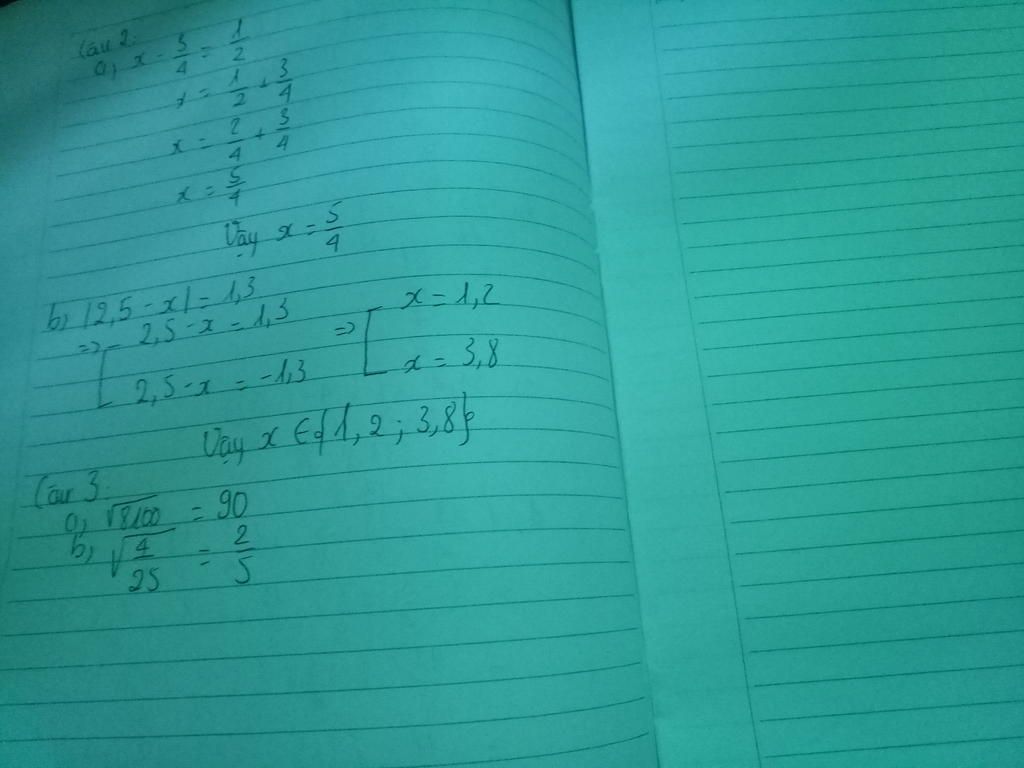 Câu 2:
a, x - 3/4 = 1/2
x = 1/2 + 3/4
x = 2/4 + 3/4
x = 5/4
Vậy x = 5/4
b, |2,5 - x| = 1,3
=> [ 2,5 - x = 1,3 => [ x = 1,2
2,5 - x = -1,3 x = 3,8
Vậy x ∈ {1,2 ; 3,8}
Câu 3:
a, √8100 = 90
b, √4/25 = 2/5